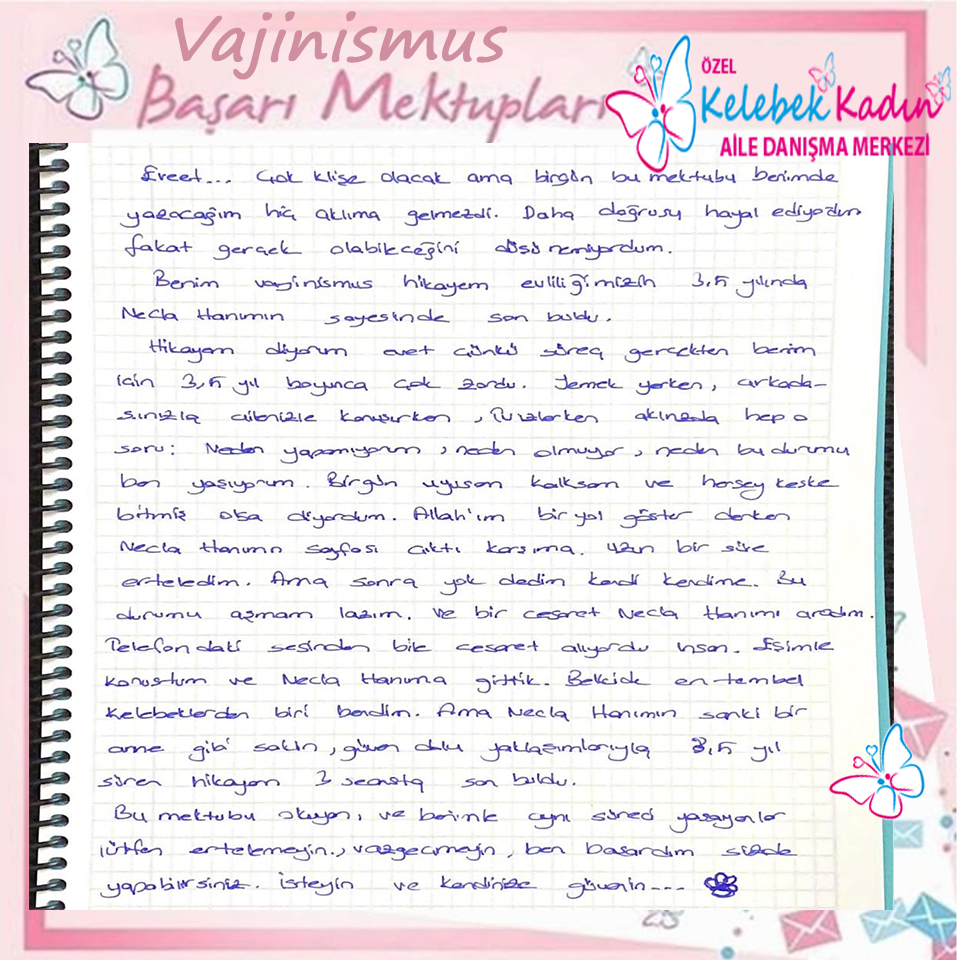 Vajinismus
Başarı Mektupları
ÖZEL
Kelebek Kadın
AİLE DANIŞMA MERKEZİ
Eveet... Çok klişe olacak ama birgün bu mektubu benimde
yazacağım hiç aklıma gelmezdi. Daha doğrusu hayal ediyordum
fakat gerçek olabileceğini düşünemiyordum.
Benim vajinismus hikayem evliliğimizin 3,5 yılında
Necla Hanımın sayesinde son buldu.
Hikayem diyorum evet çünkü süreç gerçekten benim
için 3,5 yıl boyunca çok zordu. Yemek yerken, arkada-
şınızla ailenizle konuşurken, aklınızda hep o
soru: Neden yapamıyorum, neden olmuyor, neden bu durumu
ben yaşıyorum. Birgün uyusam kalksam ve herşey keşke
bitmiş olsa diyordum. Allah'ım bir yol göster derken
Necla Hanımın sayfası çıktı karşıma. Uzun bir süre
erteledim. Ama sonra yok dedim kendi kendime. Bu
durumu aşmam lazım. Ve bir cesaret Necla Hanımı aradım.
Telefondaki sesinden bile cesaret alıyordu insan. Eşimle
konuştum ve Necla Hanıma gittik. Belkide en tembel
kelebeklerden biri bendim. Ama Necla Hanımın sanki bir
anne gibi sakin, güven dolu yaklaşımlarıyla 3,5 yıl
süren hikayem 3 seansta son buldu.
Bu mektubu okuyan, ve benimle aynı süreci yaşayanlar
lütfen ertelemeyin, vazgeçmeyin, ben başardım sizde
yapabilirsiniz. İsteyin ve kendinize güvenin...